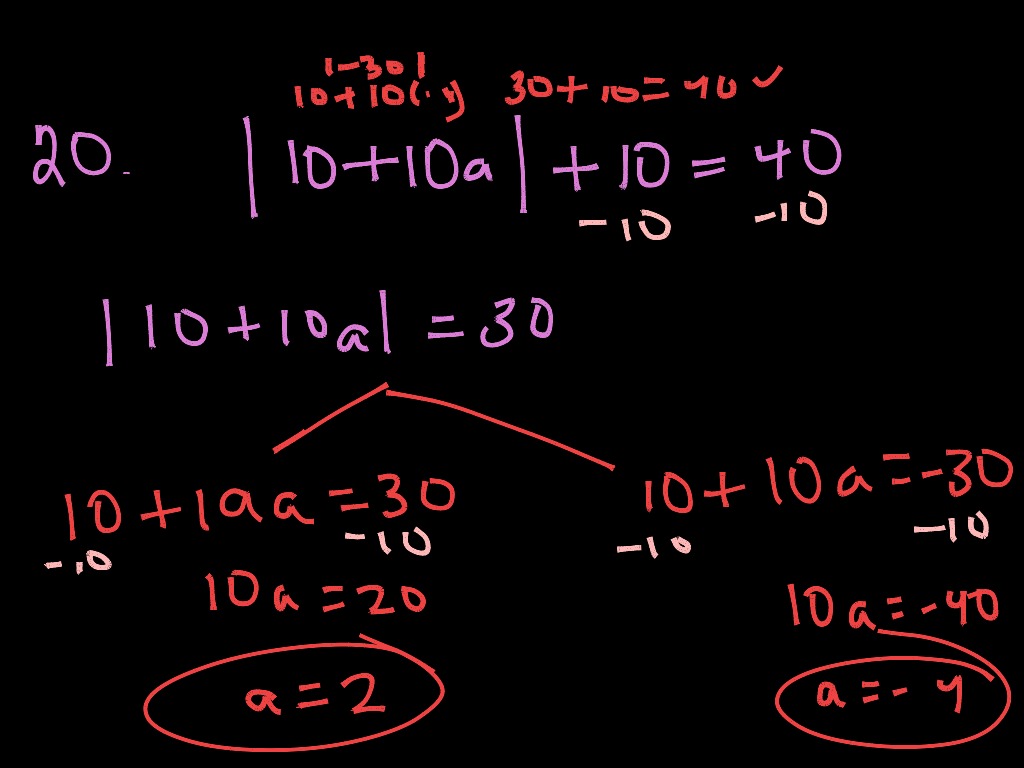 |-30|
10+10(-4) 30+10=40 ✓
20. |10+10a|+10=40
-10 -10
|10+10a|=30
10+10a=30 10+10a=-30
-10 -10 -10 -10
10a=20 10a=-40
a=2 a=-4